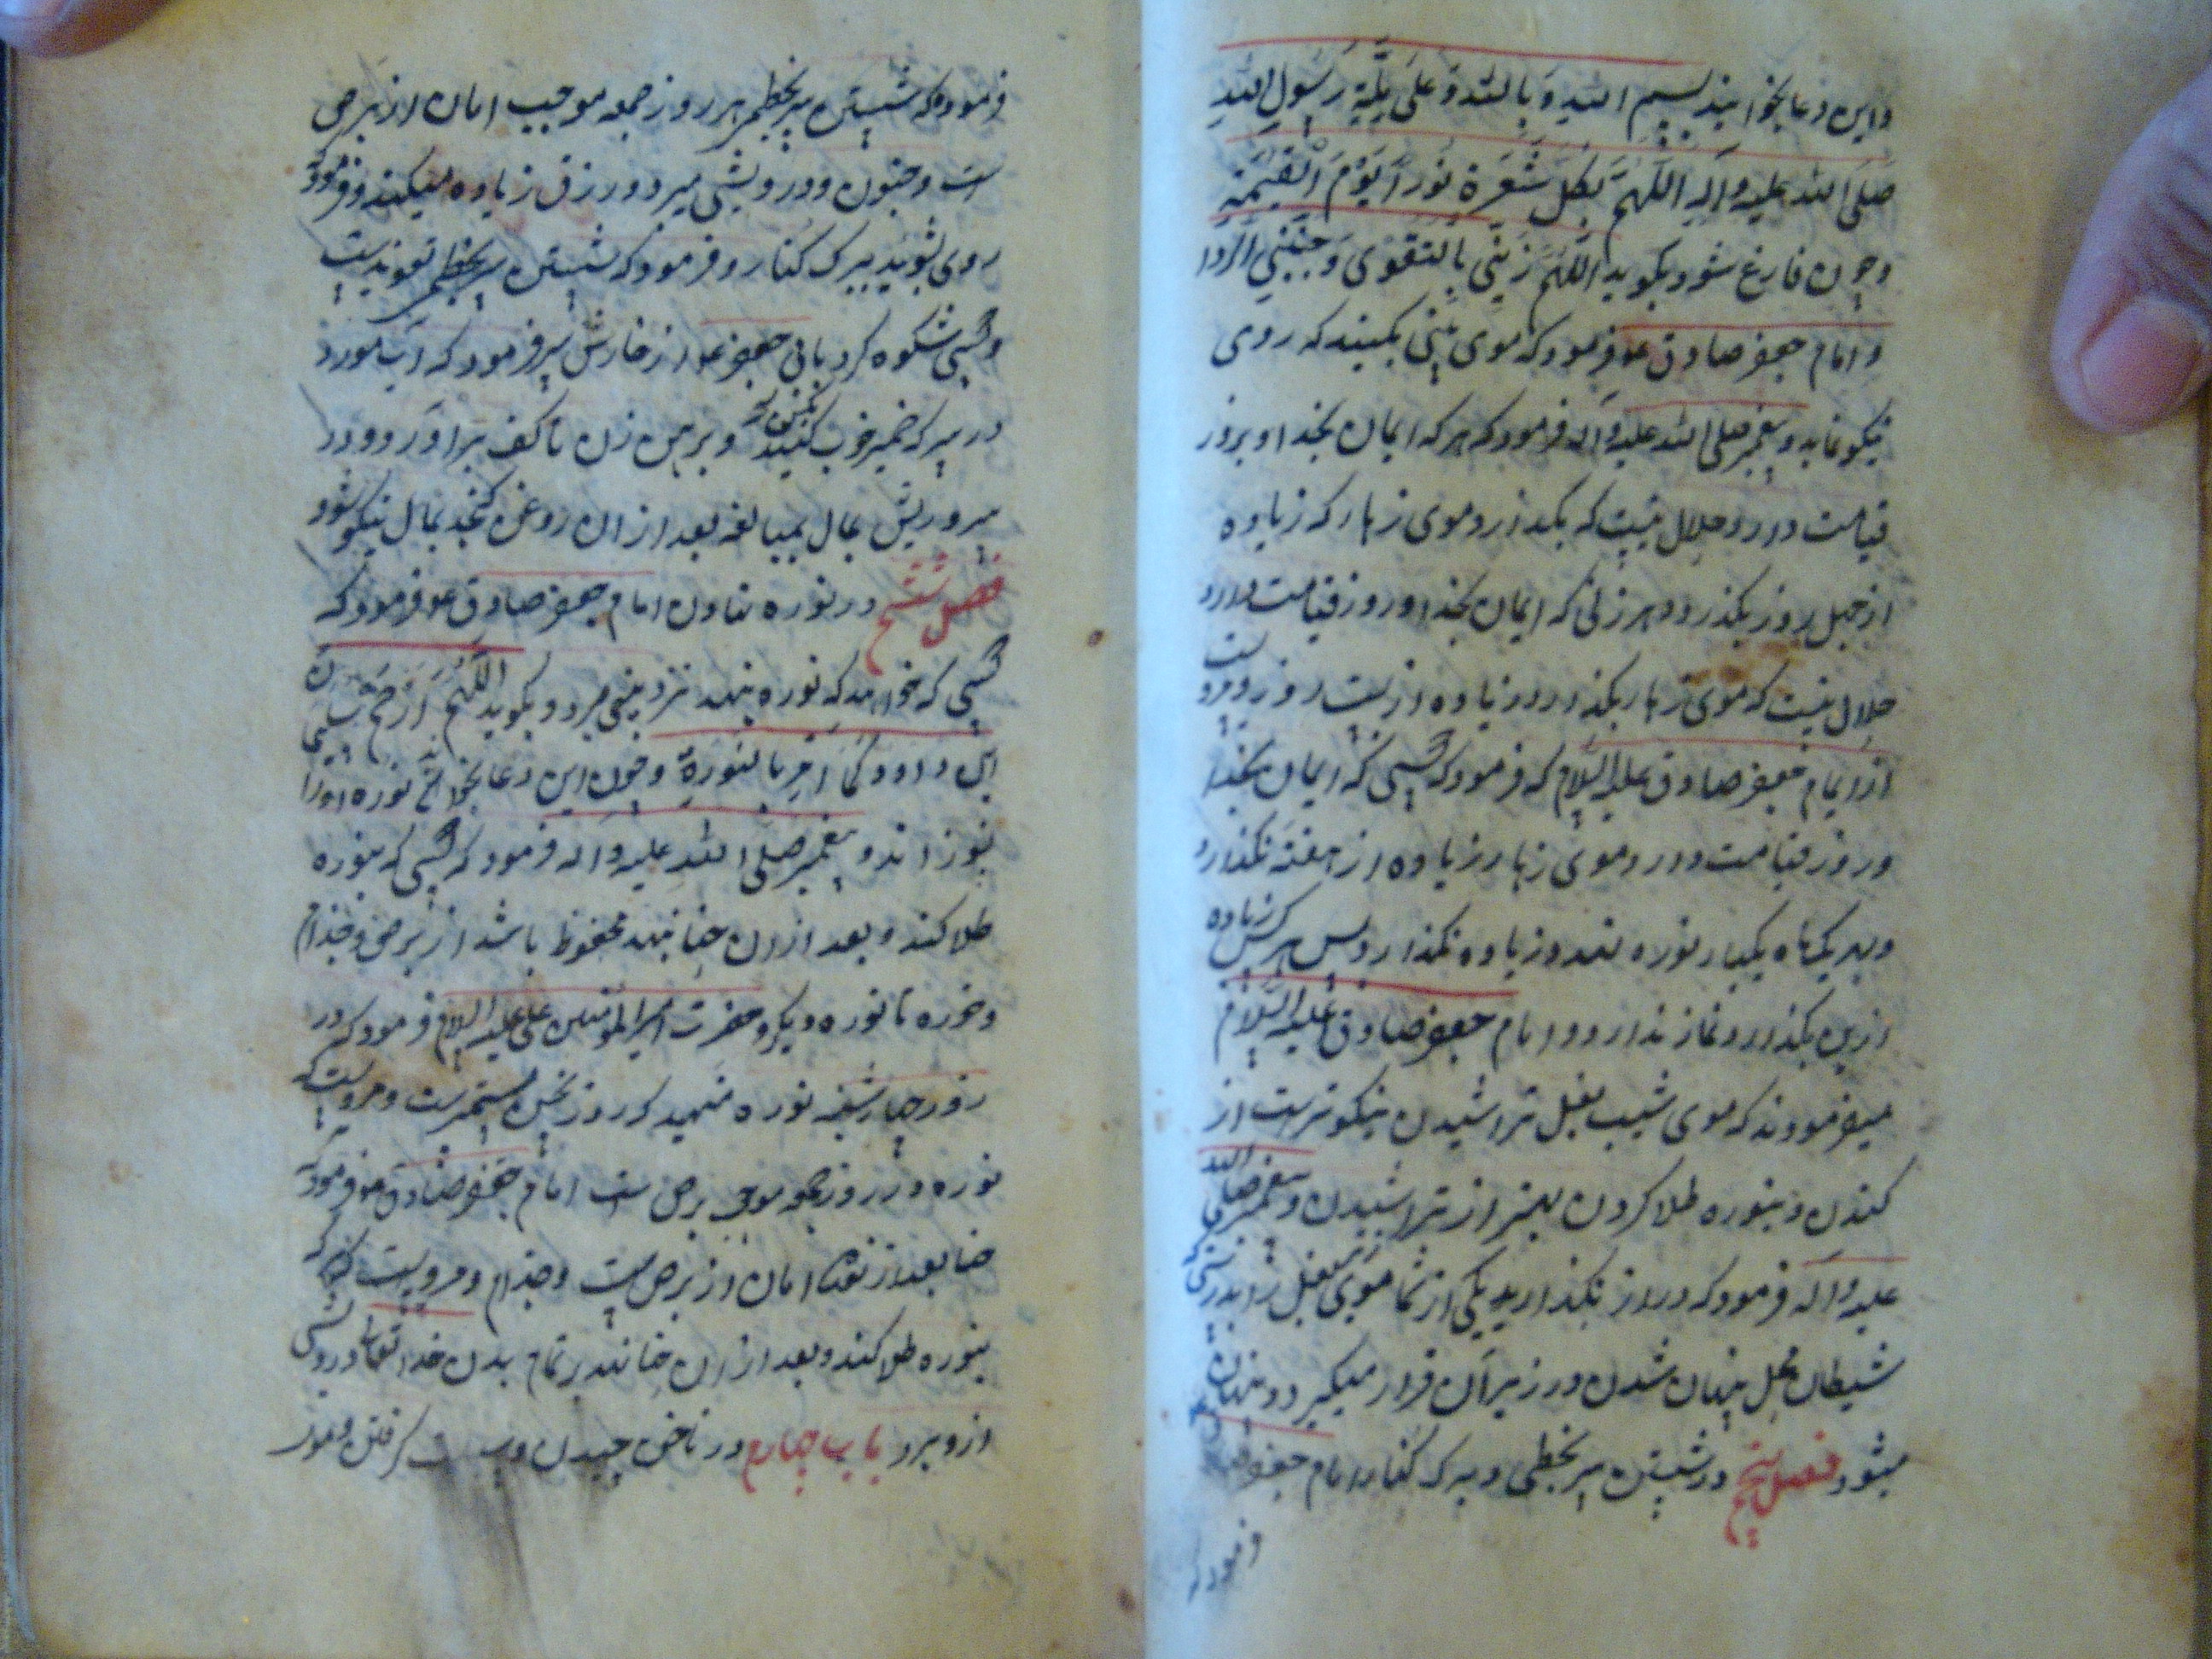 و این دعا بخوانید بسم الله و بالله و علی ملة رسول الله
صلی الله علیه و آله اللهم بکل شعرة نورا یوم القیمة
و چون فارغ شود بکوید اللهم زینی بالتقوی و جنبنی الردا
و امام جعفر صادق ع فرمود که موی بینی بکنید که روی
نیکو نماید و پیغمبر صلی الله علیه و آله فرمود که هر که ایمان بخدا و بروز
قیامت دارد حلال نیست که بکذارد موی زهار که زیاده
از چهل روز بکذرد و هر زنی که ایمان بخدا و روز قیامت دارد
حلال نیست که موی زهار بکذارد زیاده از بیست روز و مرویست
از امام جعفر صادق علیه السلام که فرمود که کسی که ایمان بخدا
و روز قیامت دارد موی زهار زیاده از هفته نکذارد
و بهر یکماه یکبار نوره نهد و زیاده نکذارد پس هر کس که زیاده
ازین بکذارد نماز ندارد و امام جعفر صادق علیه السلام
میفرمودند که موی شیب بغل تراشیدن نیکوترست از
کندن و بنوره طلا کردن بهتر از تراشیدن و پیغمبر صلی الله
علیه و آله فرمود که دراز نکذارید یکی از شما موی بغل را بدرستی
شیطان محل پنهان شدن در زیر آن قرار میکیرد و پنهان
میشود فصل پنجم در شستن سر بخطمی و ببرک کنار امام جعفر
فرمود که
فرموده که شستن سر بخطمی هر روز جمعه موجب امان از برص
است و جنون و درویشی میبرد و رزق زیاده میکند و فرمود که
روی بشوید ببرک کنار و فرمود که شستن سر بخطمی تعویذیست
و کسی شکوه کرد بابی جعفر ع از خارش سر فرمود که آب مورد
در سرکه خمر خوب کنید و برهم زن تا کف برآورد و در
سر و ریش بمال بمبالغه بعد از آن روغن کنجد بمال نیکو شود
فصل ششم در نوره نهادن امام جعفر صادق ع فرمود که
کسی که خواهد که نوره بنهد نزد بینی برد و بکوید اللهم ارحم سلیمان
ابن داود کما امر بالنورة و چون این دعا بخواند نوره او را
نسوزاند و پیغمبر صلی الله علیه و آله فرمود که کسی که بنوره
طلا کند و بعد از آن حنا بنهد محفوظ باشد از برص و جذام
و خوره تا نوره دیکر و حضرت امیر المؤمنین علی علیه السلام فرمود که در
روز چهارشنبه نوره منهید که روز نحس مستمرست و مرویست که
نوره در روز جمعه موجب برص است امام جعفر صادق ع فرمود که
حنا بعد از نوره امان از برص است و جذام و مرویست که هر که
بنوره طلا کند و بعد از آن حنا نهد بر تمام بدن خدای تعالی درویشی
ازو ببرد باب چهارم در ناخن چیدن و گرفتن